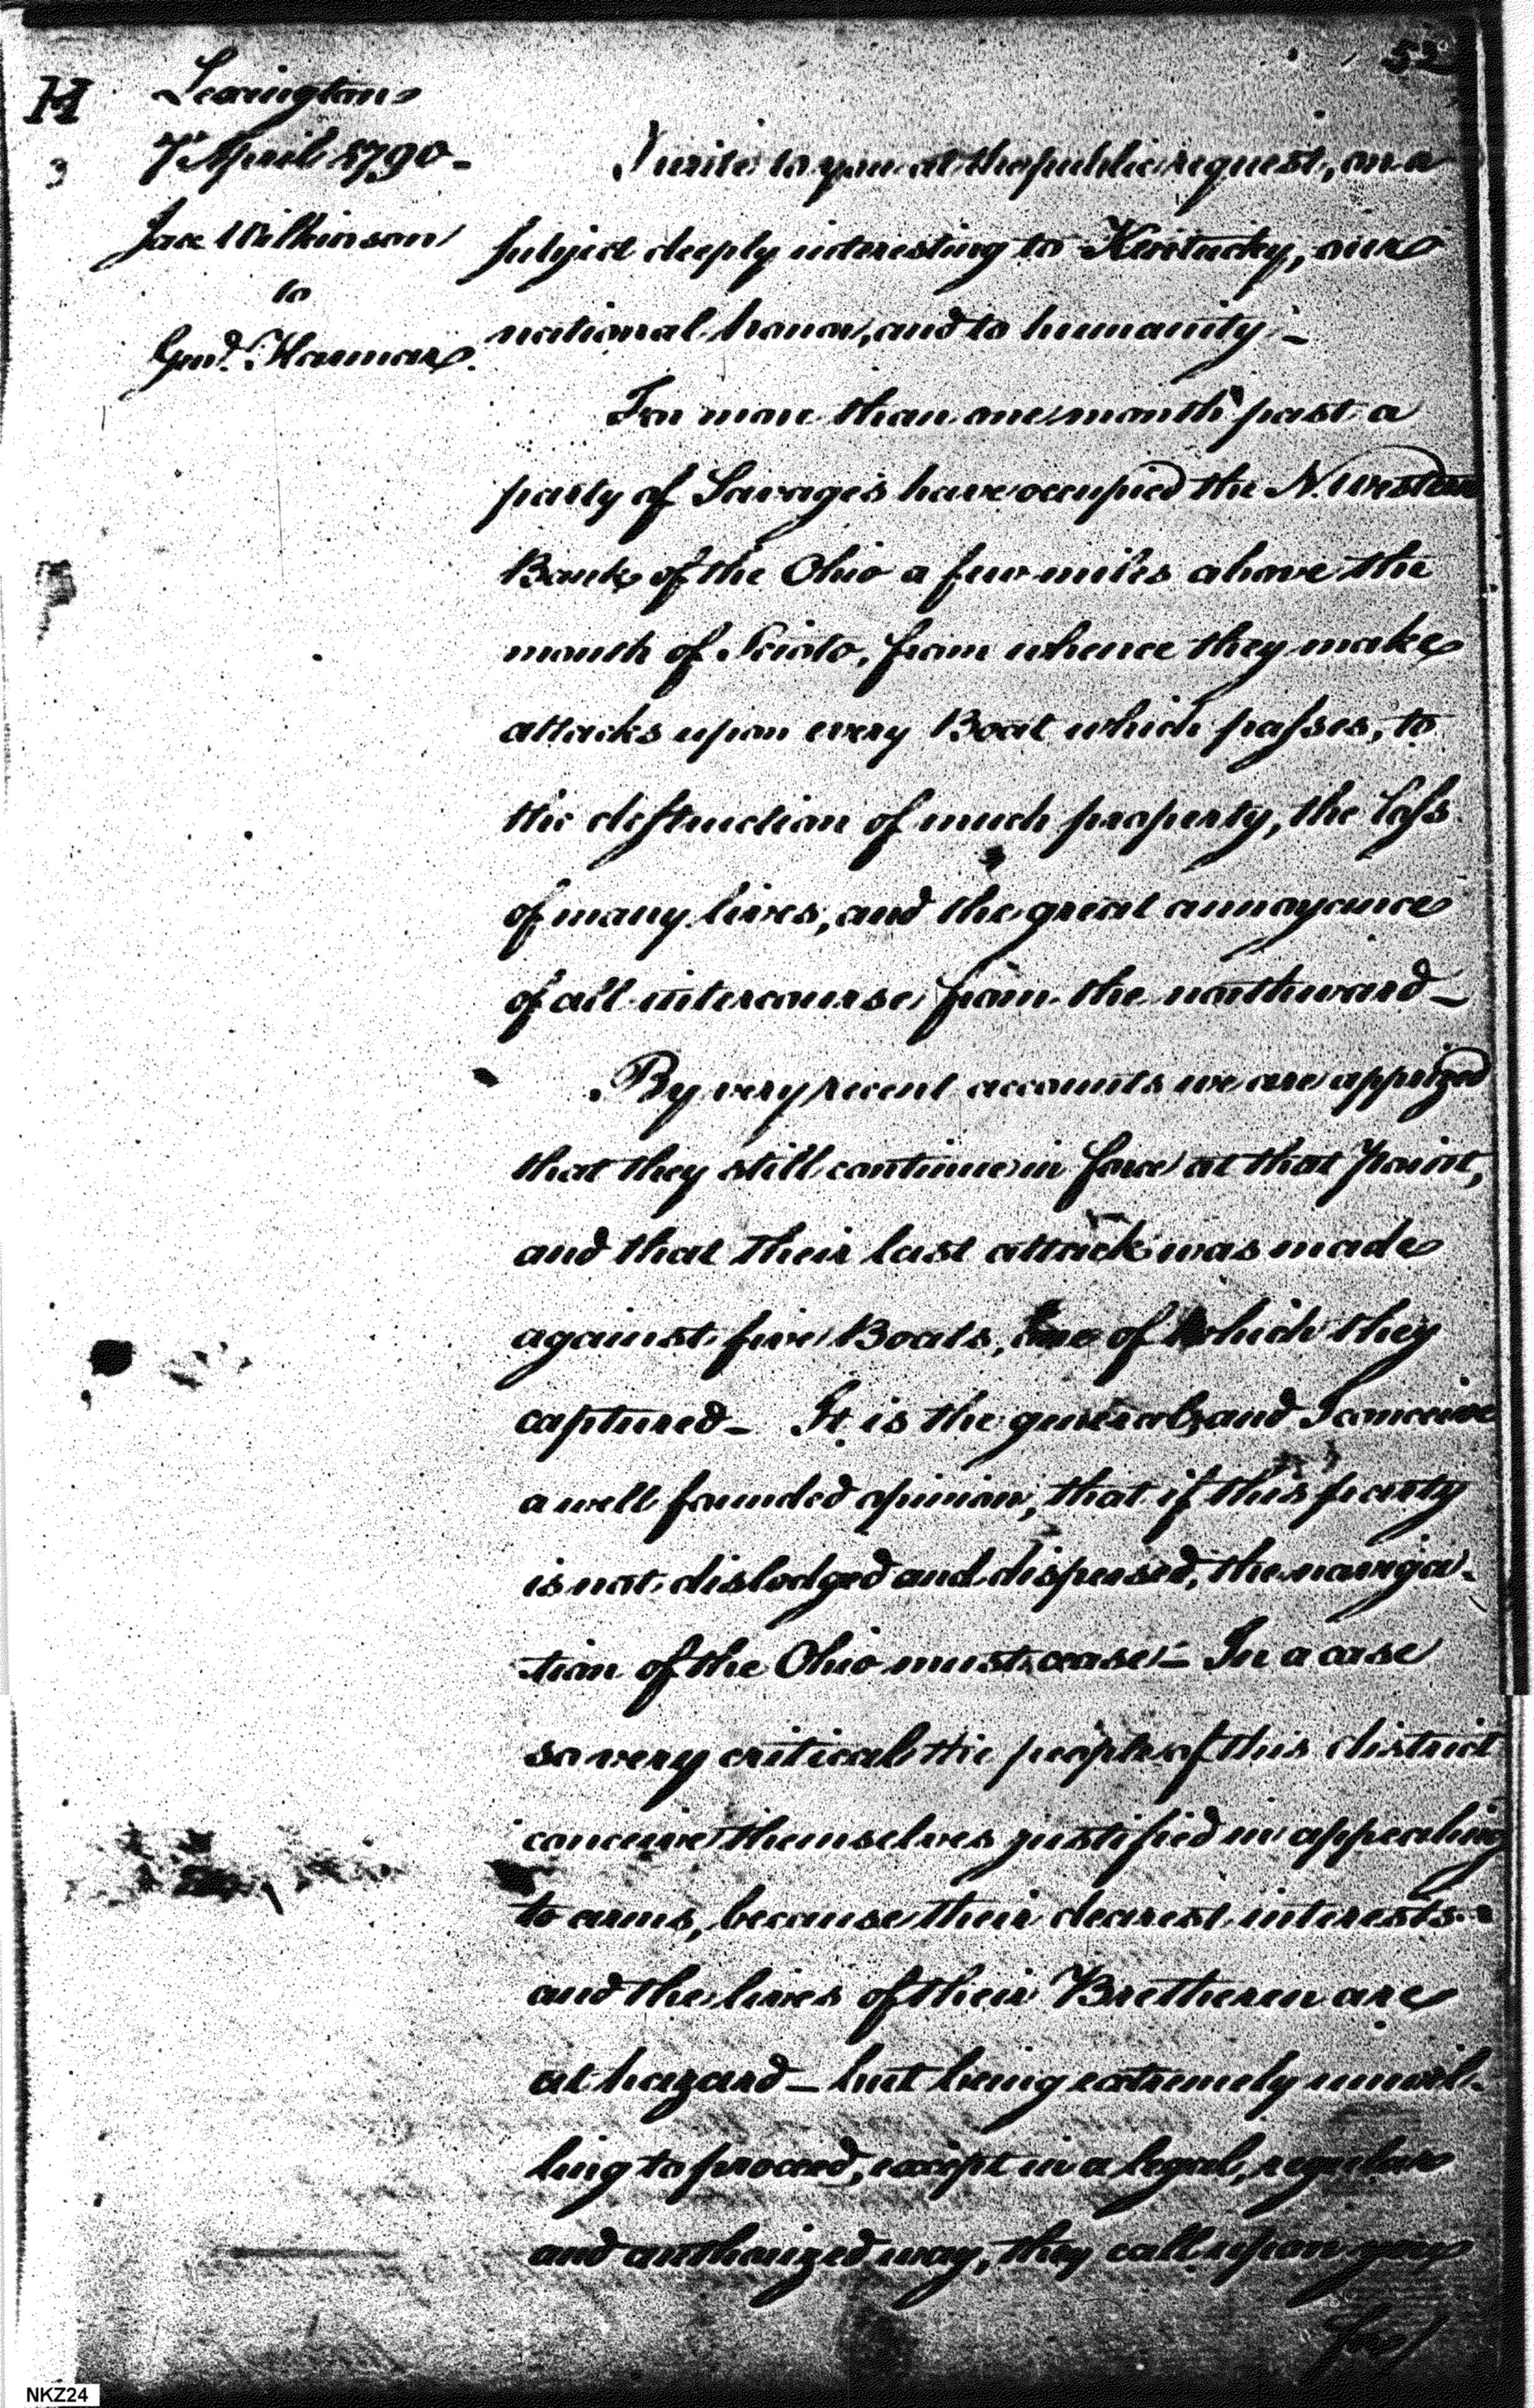 52
H
3
Lexington
7th April 1790 -
Jas. Wilkinson
to
Genl. Harmar.
I write to you at the public request, on a
subject deeply interesting to Kentucky, our
national honor, and to humanity; -
For more than one month past a
party of Savages have occupied the N. western
Bank of the Ohio a few miles above the
mouth of Scioto, from whence they make
attacks upon every Boat which passes, to
the destruction of much property, the loss
of many lives, and the great annoyance
of all intercourse from the northward -
By very recent accounts we are apprized
that they still continue in force at that Point,
and that their last attack was made
against five Boats, one of which they
captured - It is the general, and I conceive
a well founded opinion, that if this party
is not dislodged and dispersed, the naviga-
tion of the Ohio must cease - In a case
so very critical the people of this district
conceive themselves justified in appealing
to arms, because their dearest interests
and the lives of their Bretheren are
at hazard - but being extremely unwil-
ling to proceed, except in a legal, regular
and authorized way, they call upon you
for
NKZ24